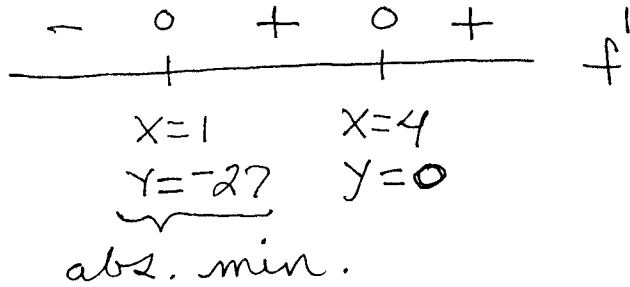 - 0 + 0 + f'
x=1 x=4
y=-27 y=0
abs. min.